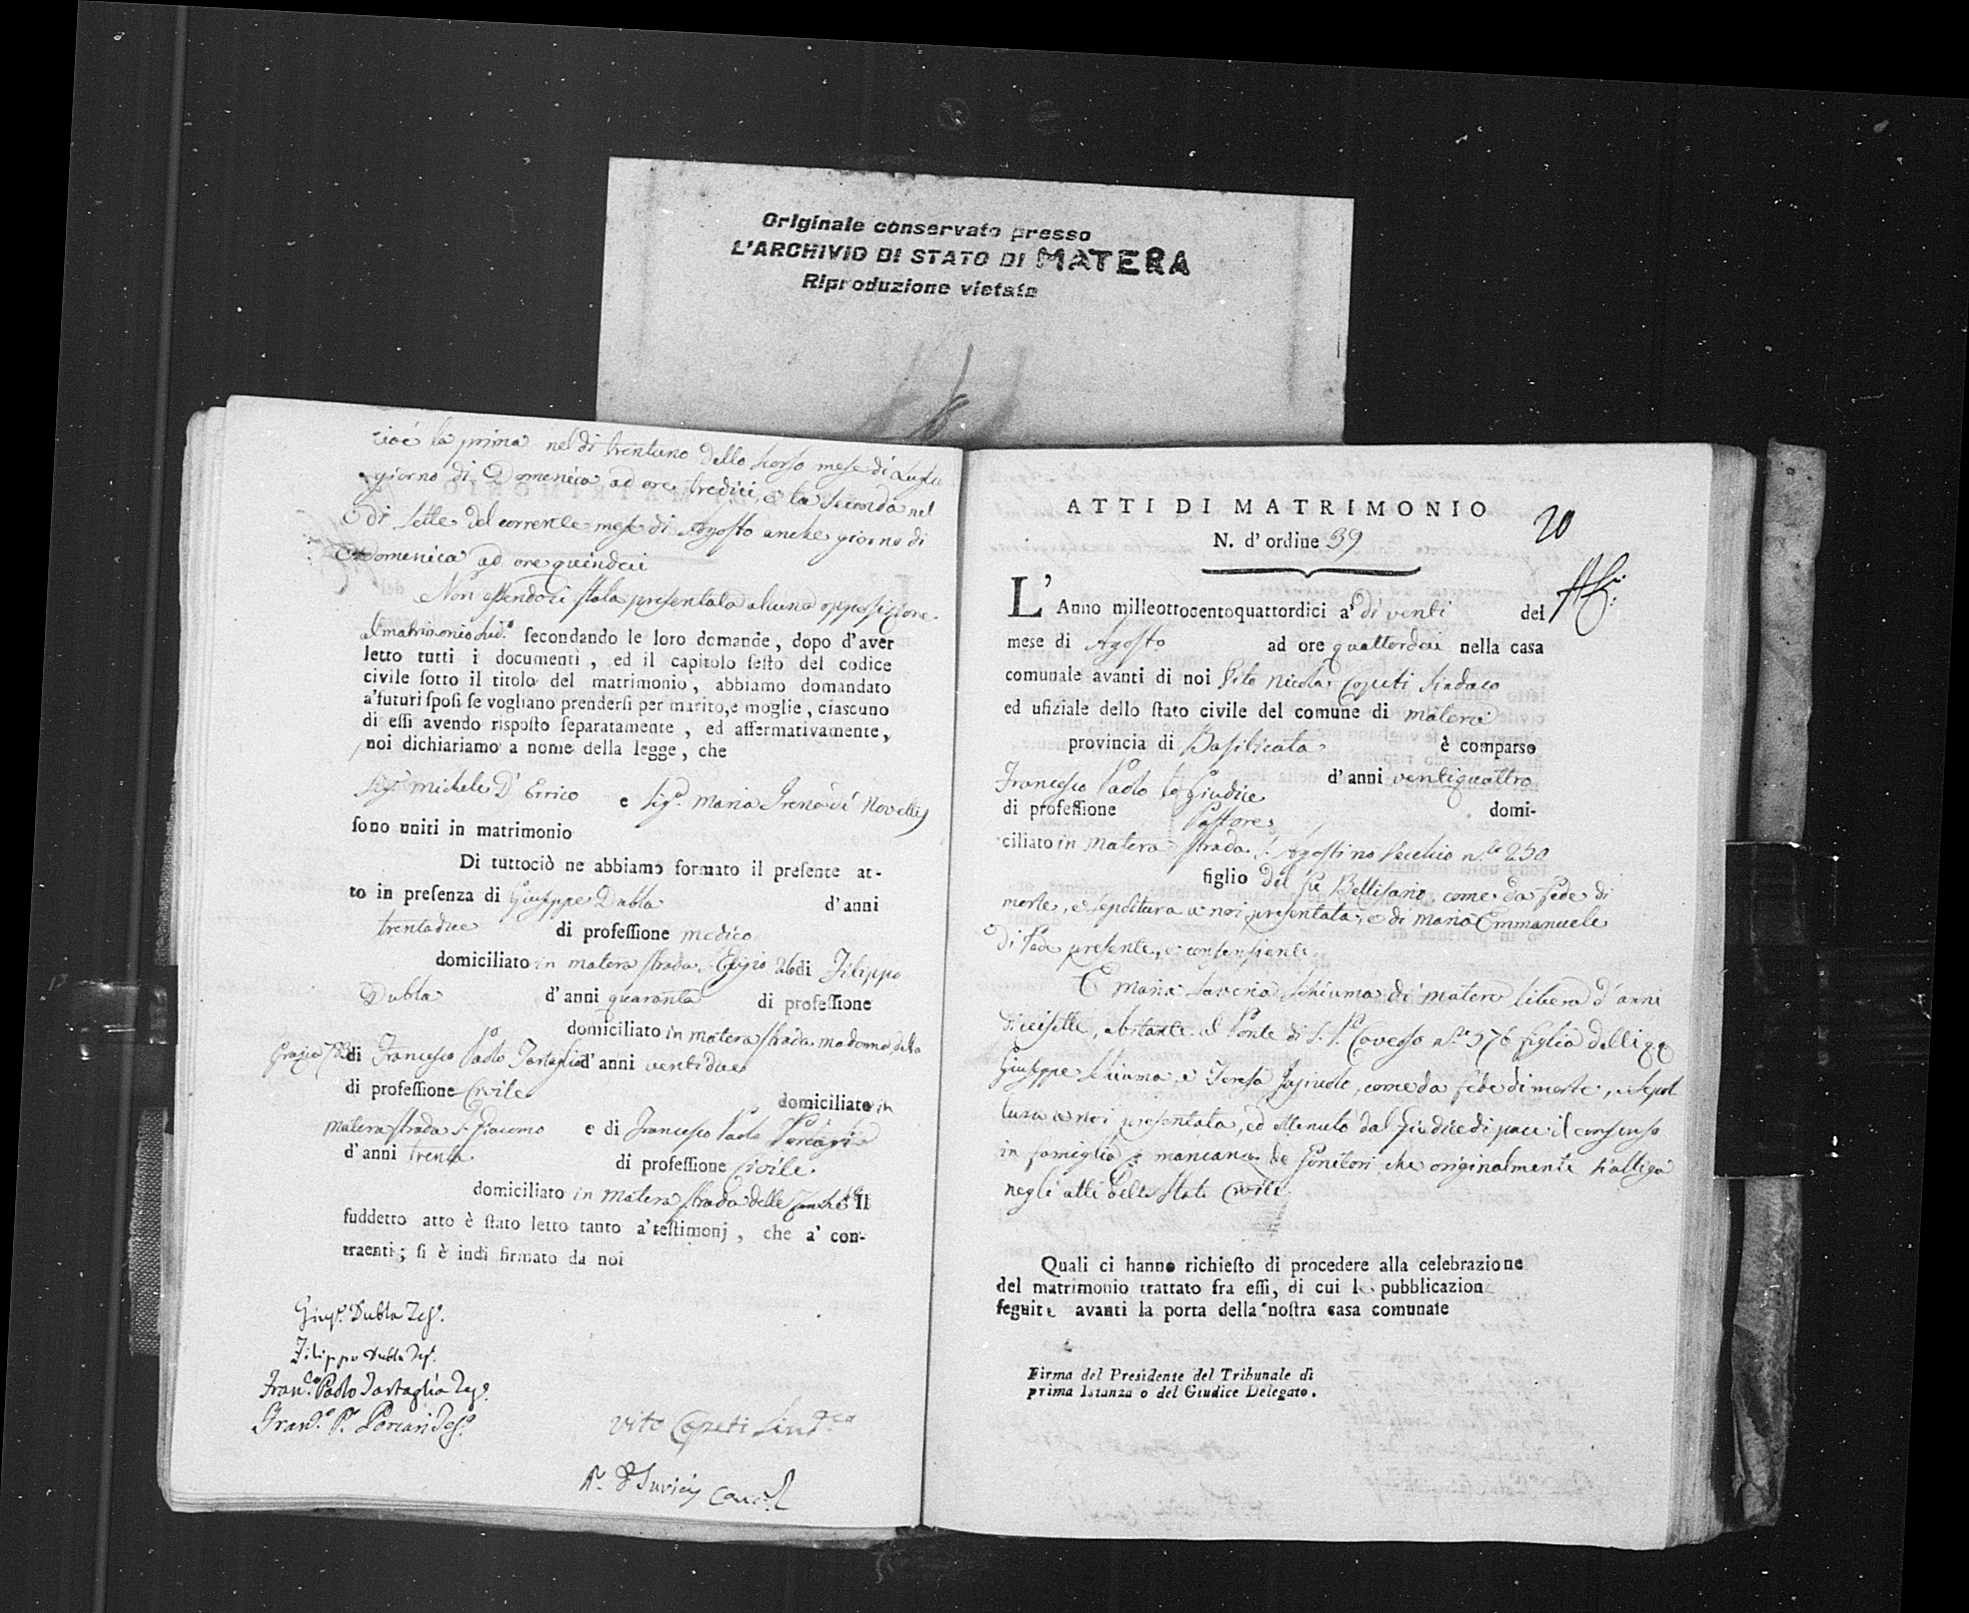 Originale conservato presso
L'ARCHIVIO DI STATO DI MATERA
Riproduzione vietata
cioè la prima nel dì trentuno dello scorso mese di Luglio
giorno di Domenica ad ore tredici, e la seconda nel
dì sette del corrente mese di Agosto anche giorno di
Domenica ad ore quindeci
Non essendosi stata presentata alcuna opposizione
al matrimonio sud.º secondando le loro domande, dopo d'aver
letto tutti i documenti, ed il capitolo sesto del codice
civile sotto il titolo del matrimonio, abbiamo domandato
a'futuri sposi se vogliano prendersi per marito, e moglie, ciascuno
di essi avendo risposto separatamente, ed affermativamente,
noi dichiariamo a nome della legge, che
Sig.r Michele D'Errico e Sig.ª Maria Irena de Novellis
sono uniti in matrimonio
Di tuttociò ne abbiamo formato il presente at-
to in presenza di Giuseppe Dubla d'anni
trentadue di professione medico
domiciliato in matera strada di Filippo
Dubla d'anni quaranta di professione
domiciliato in matera strada madonna della
Grazia di Francesco Paolo Tartaglia d'anni ventidue
di professione Civile domiciliato in
matera strada S. Giacomo e di Francesco Paolo Porcari
d'anni trenta di professione Civile
domiciliato in matera strada delle Il
suddetto atto è stato letto tanto a'testimonj, che a' con-
traenti; si è indi firmato da noi
Gius.e Dubla Tes.º
Filippo Dubla Tes.º
Fran.co Paolo Tartaglia Tes.º
Fran.co P. Porcari Tes.º
Vito Copeti Sind.co
ATTI DI MATRIMONIO
20
N. d'ordine 39
L'Anno milleottocentoquattordici a' dì venti del
mese di Agosto ad ore quattordeci nella casa
comunale avanti di noi Vito Nicola Copeti Sindaco
ed ufiziale dello stato civile del comune di matera
provincia di Basilicata è comparso
Francesco Paolo lo Giudice d'anni ventiquattro
di professione Pastore domi-
ciliato in matera strada S. Agostino Vecchio n.º 250
figlio del fu Bellisario come da fede di
morte, e sepoltura a noi presentata, e di Maria Emmanuele
di Pace presente, e consensiente
E Maria Saveria Schiuma di matera libera d'anni
diecisette, abitante al Ponte di S. P. Caveoso n.º 576 figlia delli qq
Giuseppe Schiuma, e Teresa, come da fede di morte, e sepol
tura a noi presentata, ed ottenuto dal Giudice di pace il consenso
in famiglia p mancanza de Genitori che originalmente s'alliga
negli atti dello stato Civile
Quali ci hanno richiesto di procedere alla celebrazione
del matrimonio trattato fra essi, di cui le pubblicazion
seguite avanti la porta della nostra casa comunale
Firma del Presidente del Tribunale di
prima Istanza o del Giudice Delegato.